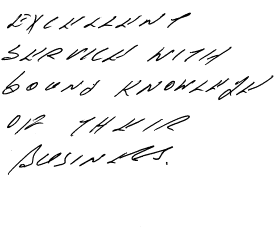 EXCELLENT
SERVICE WITH
GOUND KNOWLEGE
OF THEIR
BUSINESS.